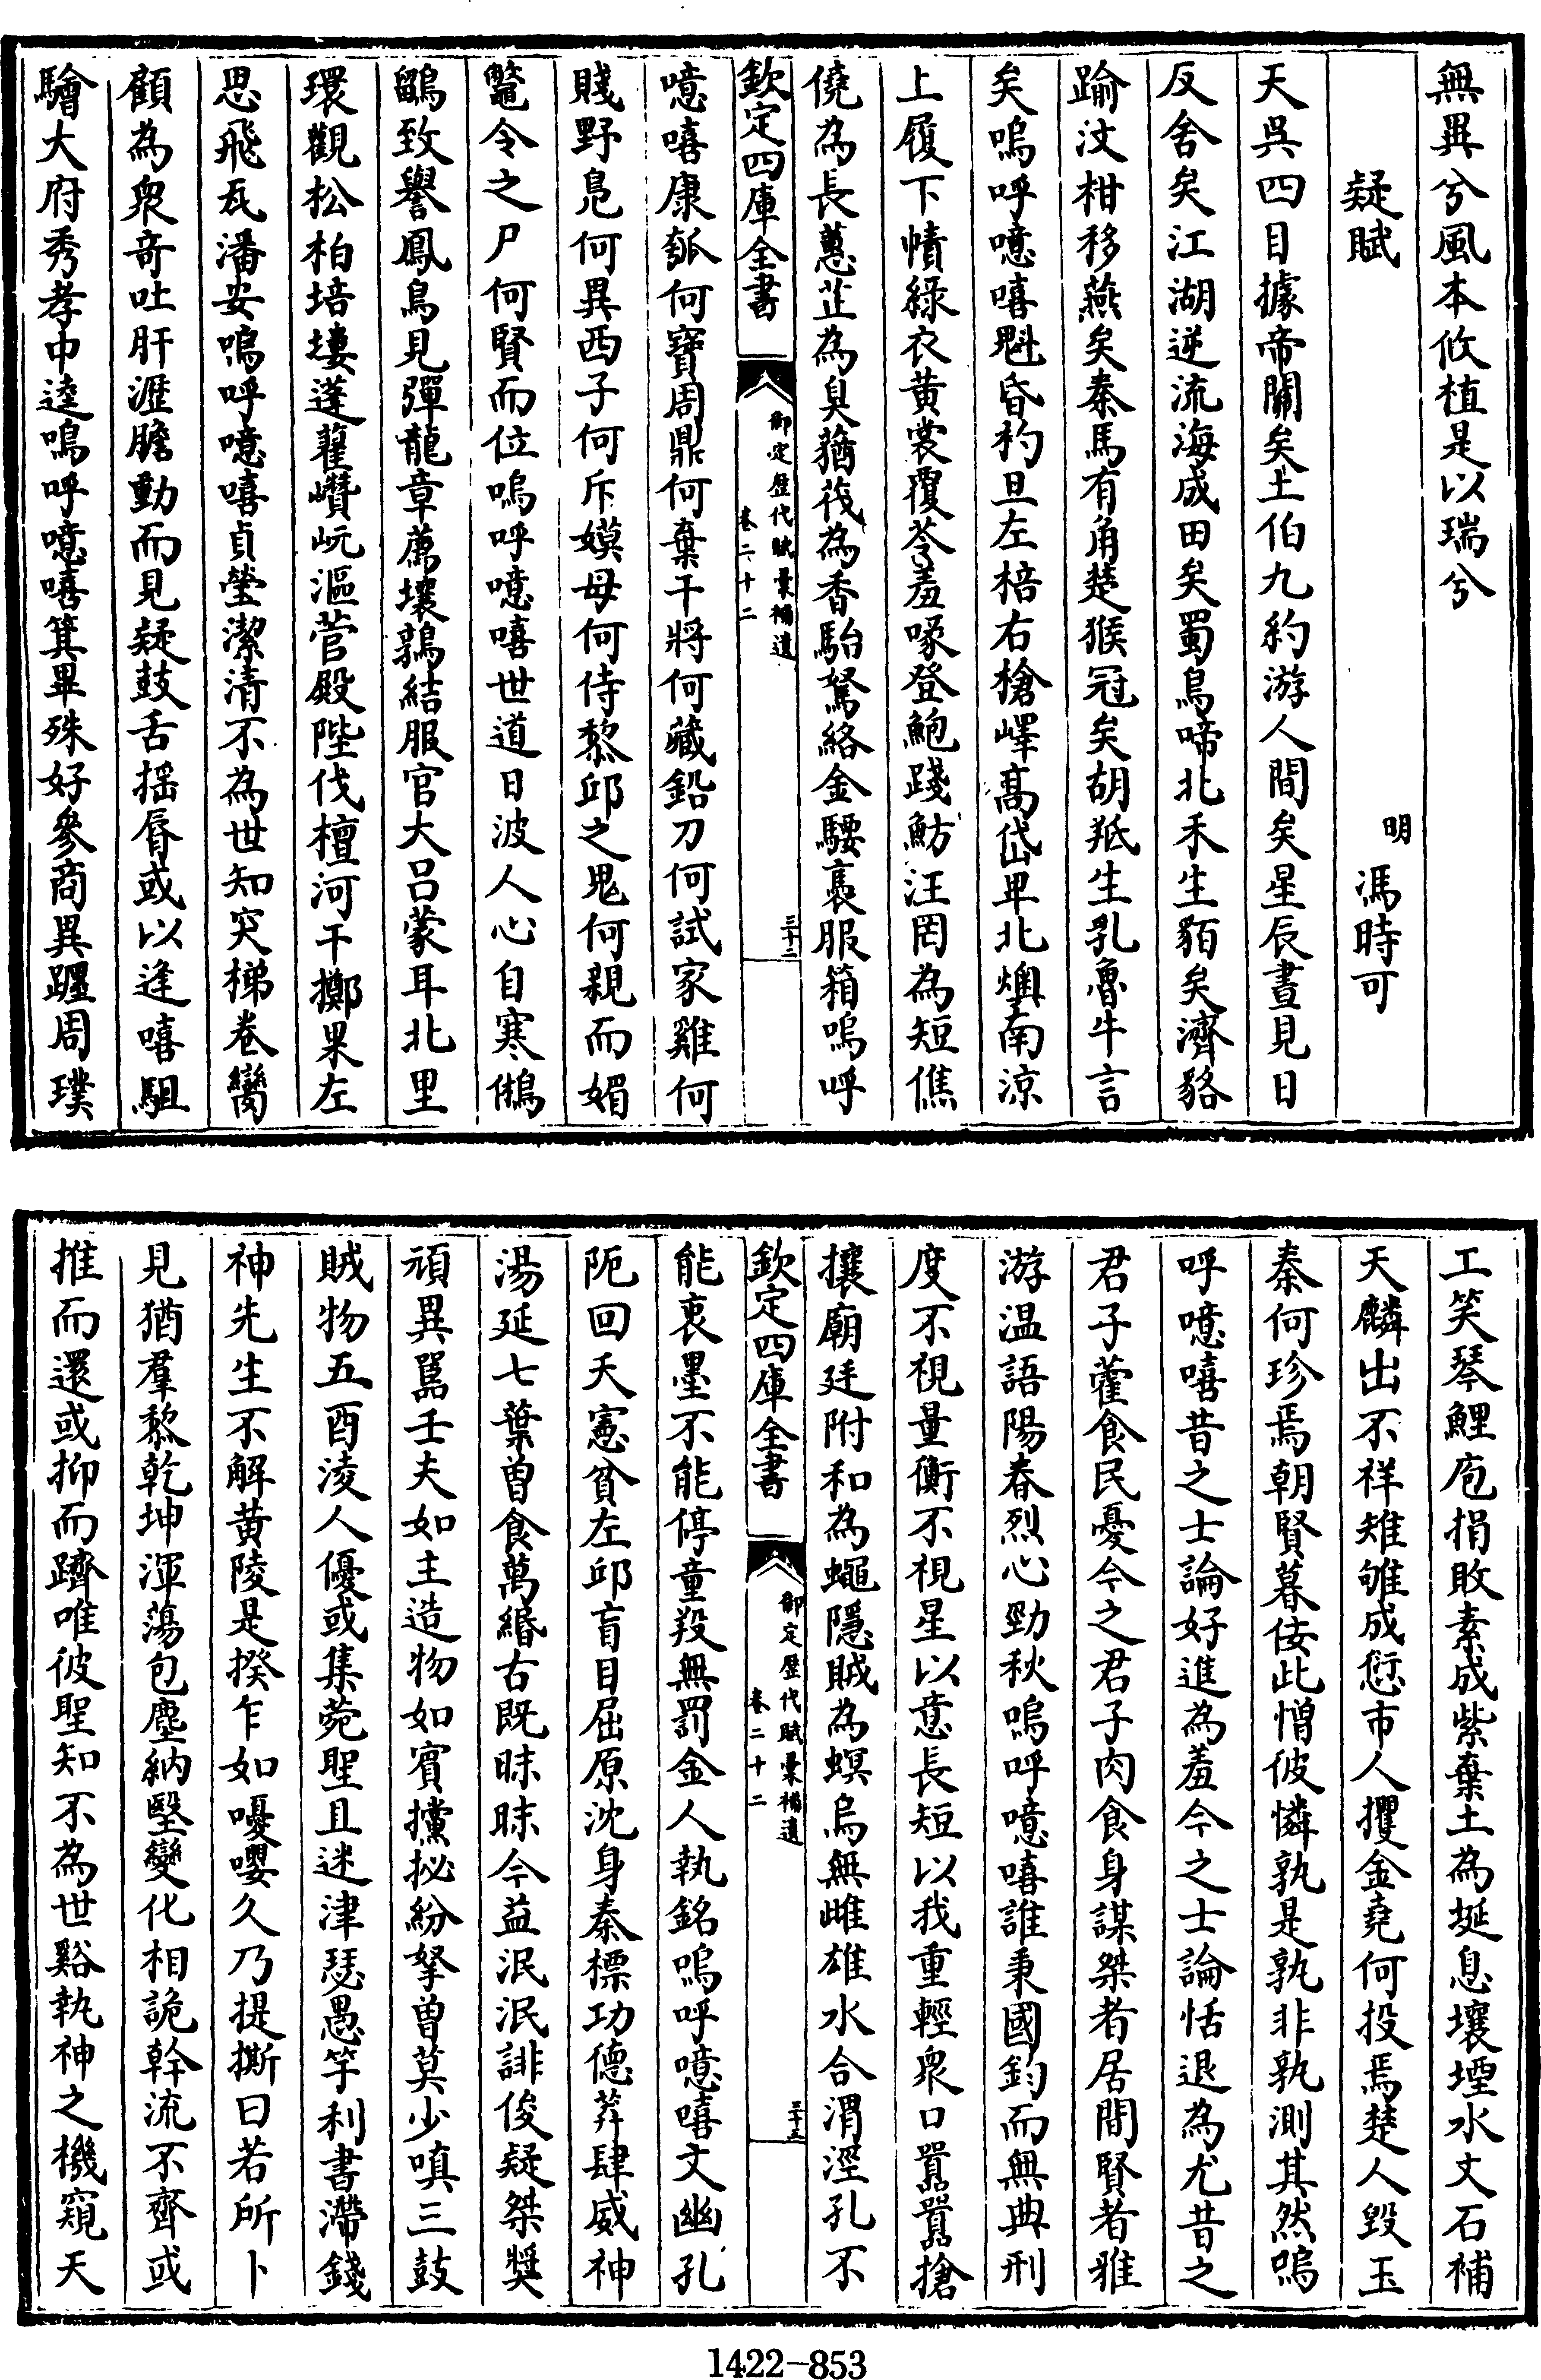 無異兮風本攸植是以瑞兮
疑賦
明馮時可
天吳四目據帝關矣土伯九約游人間矣星辰晝見日
反舍矣江湖逆流海成田矣蜀鳥啼北禾生貊矣濟貉
踰汶柑移燕矣秦馬有角楚猴冠矣胡羝生乳魯牛言
矣嗚呼噫嘻魁昏杓旦左棓右槍嶧髙岱卑北燠南涼
上履下幘綠衣黄裳覆苓羞喙登鮑踐魴汪罔為短僬
僥為長蕙芷為臭蕕茷為香駘駑絡金騕褭服箱嗚呼
欽定四庫全書
御定歴代賦彙補遺
卷二十二
三十二
噫嘻康瓠何寶周鼎何棄干將何藏鉛刀何試家雞何
賤野鳬何異西子何斥嫫母何侍黎邱之鬼何親而媚
鼈令之尸何賢而位嗚呼噫嘻世道日波人心自寒鵂
鶹致譽鳳鳥見彈龍章薦壤鶉結服官大呂蒙耳北里
環觀松柏培塿蓬藋巑岏漚菅殿陛伐檀河干擲果左
思飛瓦潘安嗚呼噫嘻貞瑩潔清不為世知突梯卷臠
顧為衆竒吐肝瀝膽動而見疑鼓舌揺脣或以逢嘻駔
驓大府秀孝中逵嗚呼噫嘻箕畢殊好參商異躔周璞
工笑琴鯉庖捐敗素成紫棄土為埏息壤堙水丈石補
天麟出不祥雉雊成愆市人攫金堯何投焉楚人毀玉
秦何珍焉朝賢暮佞此憎彼憐孰是孰非孰測其然嗚
呼噫嘻昔之士論好進為羞今之士論恬退為尤昔之
君子藿食民憂今之君子肉食身謀桀者居間賢者雅
游温語陽春烈心勁秋嗚呼噫嘻誰秉國鈞而無典刑
度不視量衡不視星以意長短以我重輕衆口囂囂搶
攘廟廷附和為蠅隱賊為螟烏無雌雄水合渭涇孔不
欽定四庫全書
御定歴代賦彙補遺
卷二十二
三十三
能衷墨不能停童羖無罰金人執銘嗚呼噫嘻文幽孔
阨回夭憲貧左邱盲目屈原沈身秦標功德莽肆威神
湯延七葉曾食萬緡古既昧昧今益泯泯誹俊疑桀奬
頑異嚚壬夫如主造物如賓攩挻紛拏曾莫少嗔三鼓
賊物五酉淩人優或集菀聖且迷津瑟愚竽利書滯錢
神先生不解黄陵是揆乍如嚘嚶久乃提撕曰若所卜
見猶羣黎乾坤渾蕩包塵納墍變化相詭斡流不齊或
推而還或抑而躋唯彼聖知不為世谿執神之機窺天
1422-853